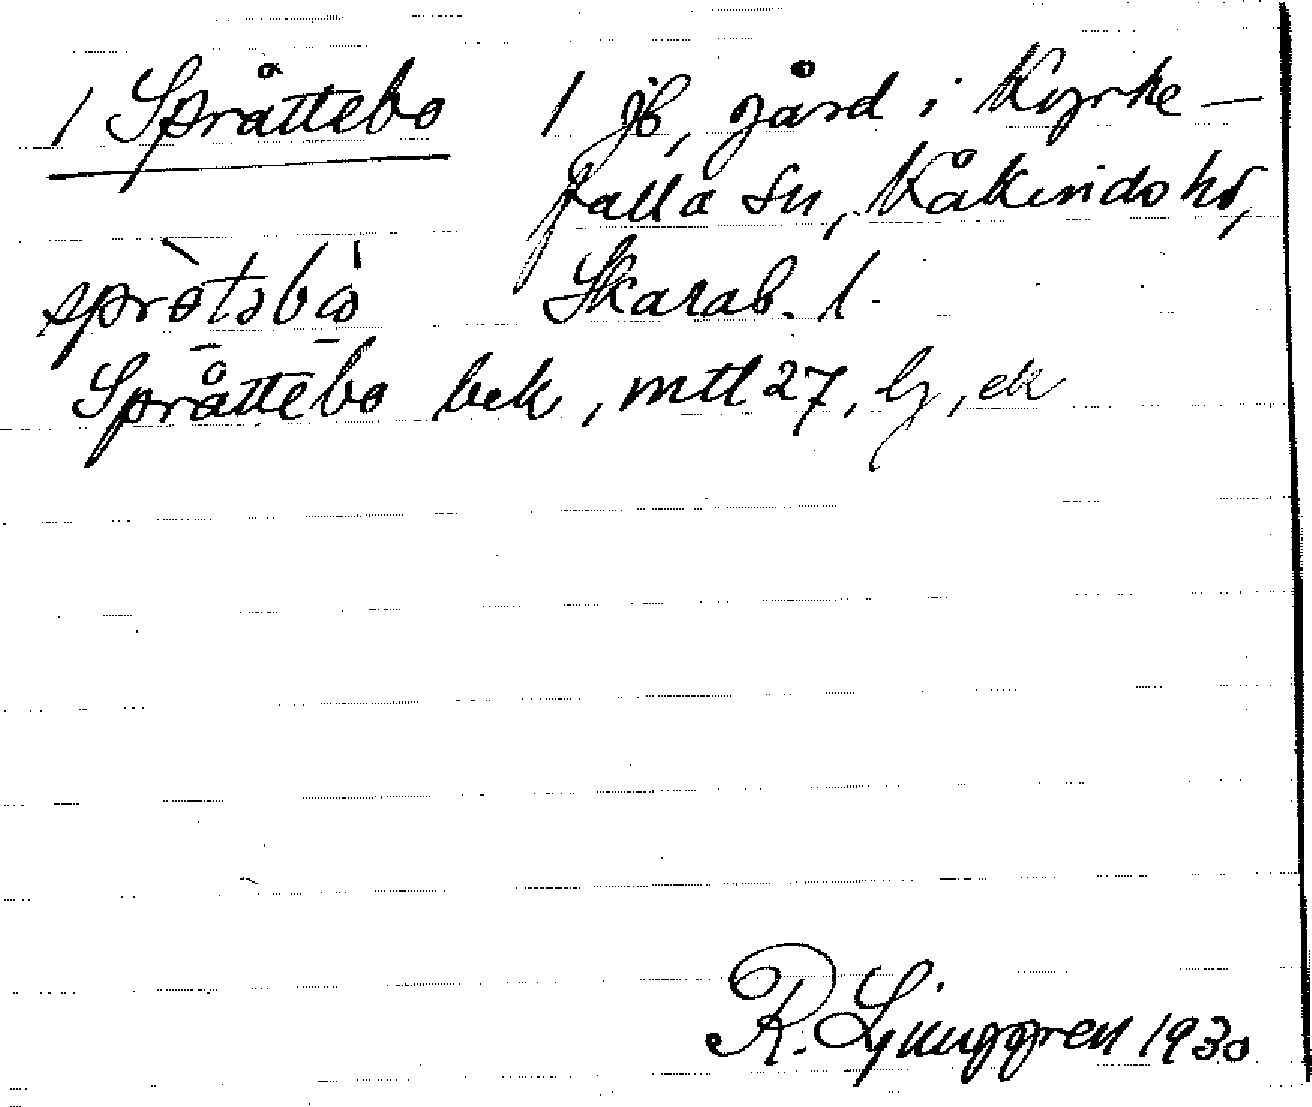 / Språttebo / jb, gård i Kyrke-
falla sn, Kåkinds hd,
spròtəbò Skarab. l.
Språttebo bek, mtl 27, lj, ek
R. Ljunggren 1930